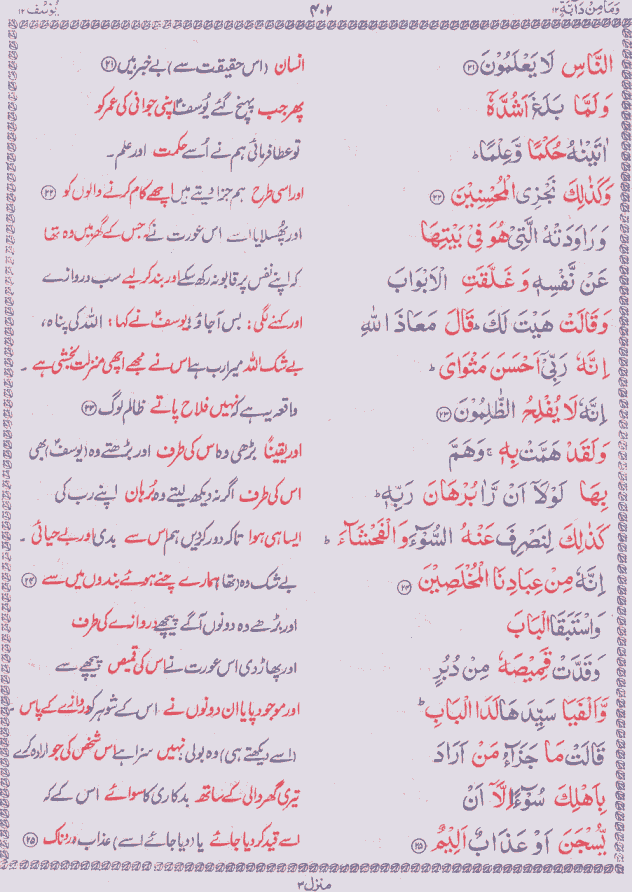 وَمَا مِنْ دَآبَّةٍ ۱۲
۴۰۲
یُوْسُف ۱۲
النَّاسِ لَا يَعْلَمُوْنَ ۲۱
انسان (اس حقیقت سے) بے خبر ہیں ۲۱
وَلَمَّا بَلَغَ اَشُدَّهٗٓ
پھر جب پہنچ گئے یُوسف اپنی جوانی کی عمر کو
اٰتَيْنٰهُ حُكْمًا وَّعِلْمًا ؕ
تو عطا فرمائی ہم نے اُسے حکمت اور علم۔
وَكَذٰلِكَ نَجْزِى الْمُحْسِنِيْنَ ۲۲
اور اسی طرح ہم جزا دیتے ہیں اچھے کام کرنے والوں کو ۲۲
وَرَاوَدَتْهُ الَّتِىْ هُوَ فِىْ بَيْتِهَا
اور پھسلایا اسے اس عورت نے جس کے گھر میں وہ تھا
عَنْ نَّفْسِهٖ وَغَلَّقَتِ الْاَبْوَابَ
کہ اپنے نفس پر قابو نہ رکھ سکے اور بند کر لیے سب دروازے
وَقَالَتْ هَيْتَ لَكَ ؕ قَالَ مَعَاذَ اللّٰهِ
اور کہنے لگی: بس آ جاؤ! یوسف نے کہا: اللہ کی پناہ،
اِنَّهٗ رَبِّىْٓ اَحْسَنَ مَثْوَاىَ ؕ
بے شک اللہ میرا رب ہے اس نے مجھے اچھی منزلت بخشی ہے۔
اِنَّهٗ لَا يُفْلِحُ الظّٰلِمُوْنَ ۲۳
واقعہ یہ ہے کہ نہیں فلاح پاتے ظالم لوگ ۲۳
وَلَقَدْ هَمَّتْ بِهٖ ۚ وَهَمَّ
اور یقیناً بڑھی وہ اس کی طرف اور بڑھتے وہ (یوسف) بھی
بِهَا لَوْلَآ اَنْ رَّاٰ بُرْهَانَ رَبِّهٖ ؕ
اس کی طرف اگر نہ دیکھ لیتے وہ بُرہان اپنے رب کی
كَذٰلِكَ لِنَصْرِفَ عَنْهُ السُّوْٓءَ وَالْفَحْشَآءَ ؕ
ایسا ہی ہوا تاکہ دور کر دیں ہم اس سے بدی اور بے حیائی۔
اِنَّهٗ مِنْ عِبَادِنَا الْمُخْلَصِيْنَ ۲۴
بے شک وہ (تھا) ہمارے چنے ہوئے بندوں میں سے ۲۴
وَاسْتَبَقَا الْبَابَ
اور بڑھے وہ دونوں آگے پیچھے دروازے کی طرف
وَقَدَّتْ قَمِيْصَهٗ مِنْ دُبُرٍ
اور پھاڑ دی اس عورت نے اس کی قمیص پیچھے سے
وَّاَلْفَيَا سَيِّدَهَا لَدَا الْبَابِ ؕ
اور موجود پایا ان دونوں نے اس کے شوہر کو دروازے کے پاس
قَالَتْ مَا جَزَآءُ مَنْ اَرَادَ
(اسے دیکھتے ہی) وہ بولی: نہیں سزا ہے اس شخص کی جو ارادہ کرے
بِاَهْلِكَ سُوْٓءًا اِلَّآ اَنْ
تیری گھر والی کے ساتھ بدکاری کا سوائے اس کے کہ
يُّسْجَنَ اَوْ عَذَابٌ اَلِيْمٌ ۲۵
اسے قید کر دیا جائے یا (دیا جائے اسے) عذاب دردناک ۲۵
منزل ۳